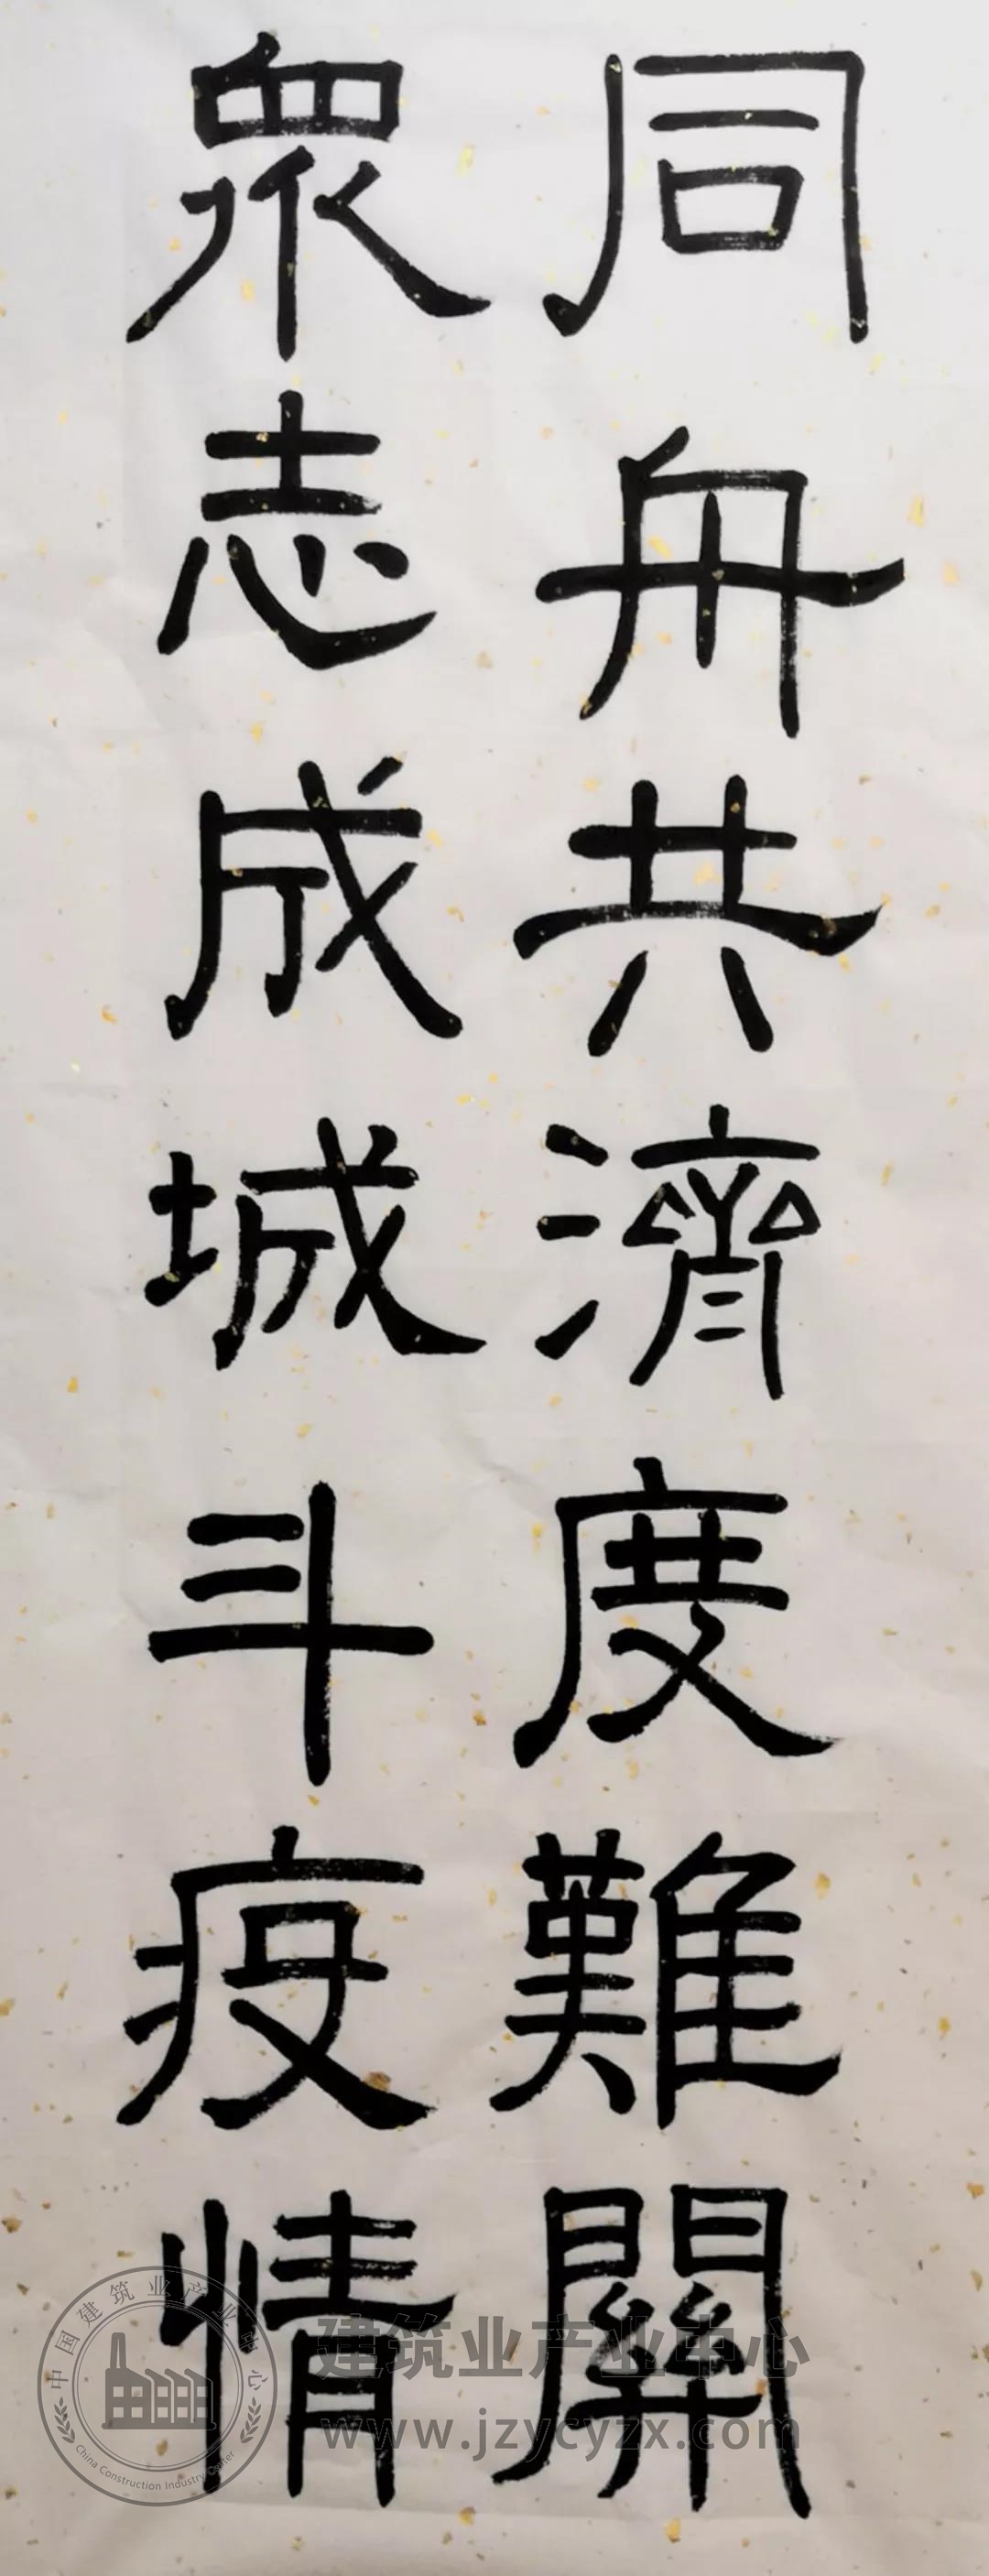 同舟共濟度難關
眾志成城斗疫情
中国建筑业产业中心
China Construction Industry Center
建筑业产业中心
www.jzycyzx.com